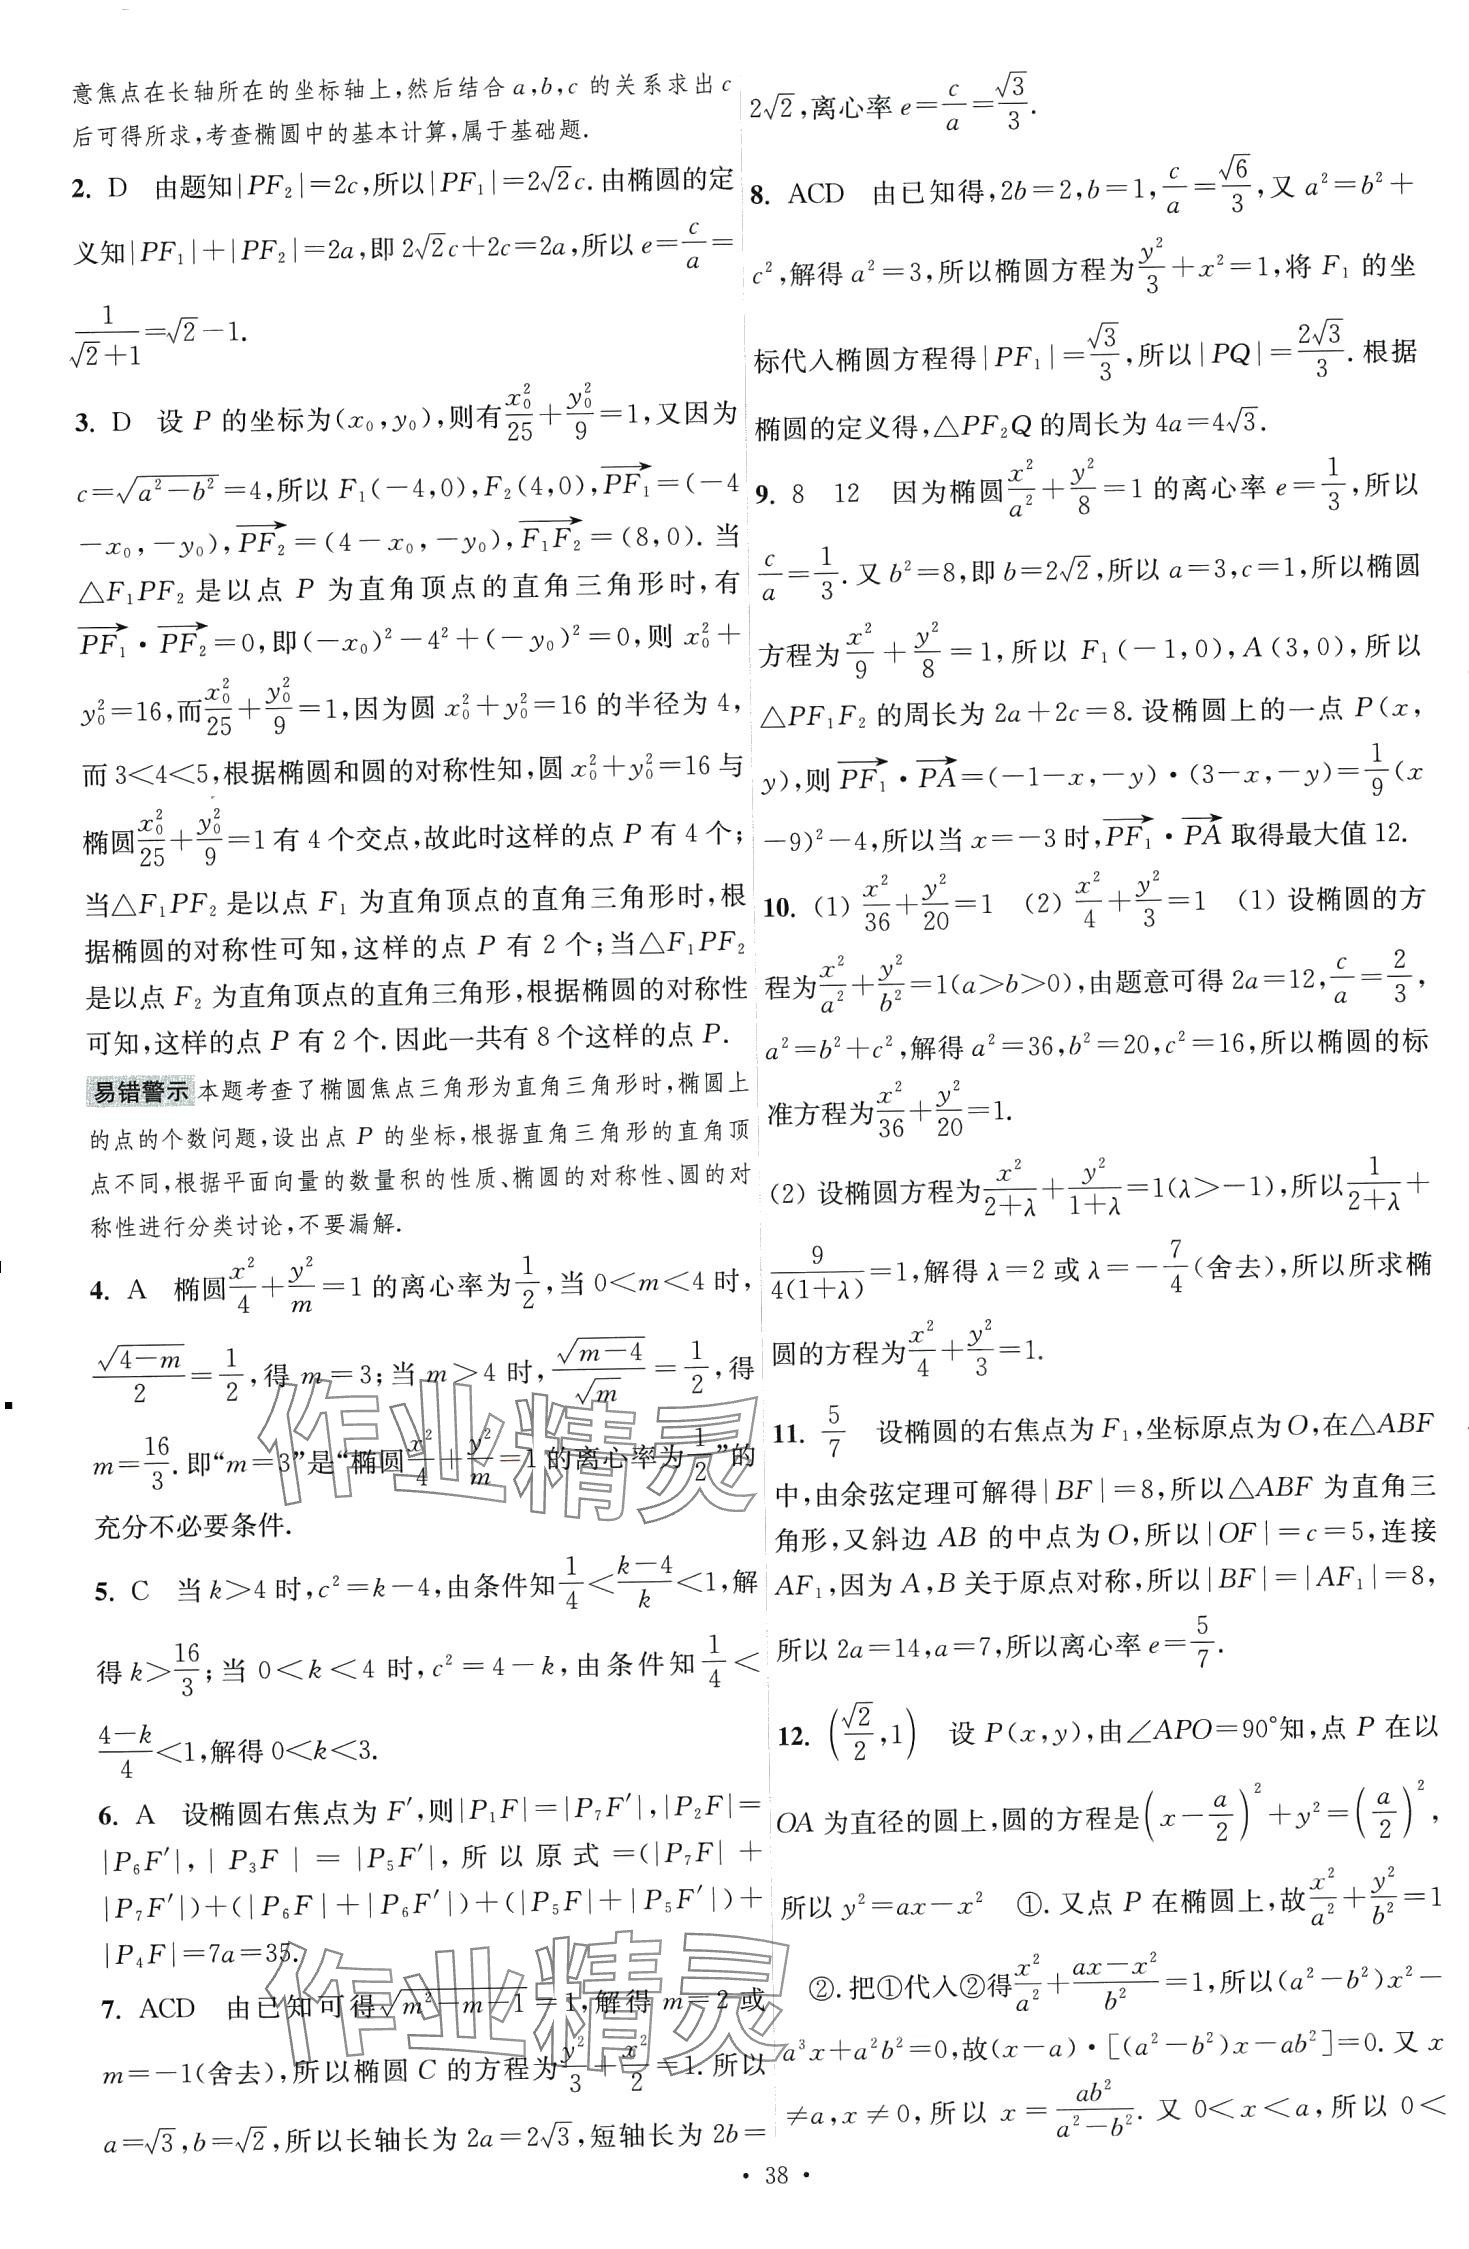 意焦点在长轴所在的坐标轴上,然后结合 a,b,c 的关系求出 c
后可得所求,考查椭圆中的基本计算,属于基础题.
2. D 由题知|PF₂|=2c,所以|PF₁|=2√2c.由椭圆的定
义知|PF₁|+|PF₂|=2a,即 2√2c+2c=2a,所以 e=c/a=
1/(√2+1)=√2-1.
3. D 设 P 的坐标为(x₀,y₀),则有x₀²/25+y₀²/9=1,又因为
c=√(a²-b²)=4,所以 F₁(-4,0),F₂(4,0),PF₁→=(-4
-x₀,-y₀),PF₂→=(4-x₀,-y₀),F₁F₂→=(8,0).当
△F₁PF₂ 是以点 P 为直角顶点的直角三角形时,有
PF₁→·PF₂→=0,即(-x₀)²-4²+(-y₀)²=0,则 x₀²+
y₀²=16,而x₀²/25+y₀²/9=1,因为圆 x₀²+y₀²=16 的半径为 4,
而 3<4<5,根据椭圆和圆的对称性知,圆 x₀²+y₀²=16 与
椭圆x₀²/25+y₀²/9=1 有 4 个交点,故此时这样的点 P 有 4 个;
当△F₁PF₂ 是以点 F₁ 为直角顶点的直角三角形时,根
据椭圆的对称性可知,这样的点 P 有 2 个;当△F₁PF₂
是以点 F₂ 为直角顶点的直角三角形,根据椭圆的对称性
可知,这样的点 P 有 2 个.因此一共有 8 个这样的点 P.
易错警示 本题考查了椭圆焦点三角形为直角三角形时,椭圆上
的点的个数问题,设出点 P 的坐标,根据直角三角形的直角顶
点不同,根据平面向量的数量积的性质、椭圆的对称性、圆的对
称性进行分类讨论,不要漏解.
4. A 椭圆x²/4+y²/m=1 的离心率为1/2,当 0<m<4 时,
√(4-m)/2=1/2,得 m=3;当 m>4 时,√(m-4)/√m=1/2,得
m=16/3.即“m=3”是“椭圆x²/4+y²/m=1 的离心率为1/2”的
充分不必要条件.
5. C 当 k>4 时,c²=k-4,由条件知1/4<(k-4)/k<1,解
得 k>16/3;当 0<k<4 时,c²=4-k,由条件知1/4<
(4-k)/4<1,解得 0<k<3.
6. A 设椭圆右焦点为 F′,则|P₁F|=|P₇F′|,|P₂F|=
|P₆F′|,|P₃F|=|P₅F′|,所以原式=(|P₇F|+
|P₇F′|)+(|P₆F|+|P₆F′|)+(|P₅F|+|P₅F′|)+
|P₄F|=7a=35.
7. ACD 由已知可得√(m²-m-1)=1,解得 m=2 或
m=-1(舍去),所以椭圆 C 的方程为y²/3+x²/2=1.所以
a=√3,b=√2,所以长轴长为 2a=2√3,短轴长为 2b=
2√2,离心率 e=c/a=√3/3.
8. ACD 由已知得,2b=2,b=1,c/a=√6/3,又 a²=b²+
c²,解得 a²=3,所以椭圆方程为y²/3+x²=1,将 F₁ 的坐
标代入椭圆方程得|PF₁|=√3/3,所以|PQ|=2√3/3.根据
椭圆的定义得,△PF₂Q 的周长为 4a=4√3.
9. 8 12 因为椭圆x²/a²+y²/8=1 的离心率 e=1/3,所以
c/a=1/3.又 b²=8,即 b=2√2,所以 a=3,c=1,所以椭圆
方程为x²/9+y²/8=1,所以 F₁(-1,0),A(3,0),所以
△PF₁F₂ 的周长为 2a+2c=8.设椭圆上的一点 P(x,
y),则PF₁→·PA→=(-1-x,-y)·(3-x,-y)=1/9(x
-9)²-4,所以当 x=-3 时,PF₁→·PA→取得最大值 12.
10. (1) x²/36+y²/20=1 (2) x²/4+y²/3=1 (1) 设椭圆的方
程为x²/a²+y²/b²=1(a>b>0),由题意可得 2a=12,c/a=2/3,
a²=b²+c²,解得 a²=36,b²=20,c²=16,所以椭圆的标
准方程为x²/36+y²/20=1.
(2) 设椭圆方程为x²/(2+λ)+y²/(1+λ)=1(λ>-1),所以1/(2+λ)+
9/(4(1+λ))=1,解得 λ=2 或 λ=-7/4(舍去),所以所求椭
圆的方程为x²/4+y²/3=1.
11. 5/7 设椭圆的右焦点为 F₁,坐标原点为 O,在△ABF
中,由余弦定理可解得|BF|=8,所以△ABF 为直角三
角形,又斜边 AB 的中点为 O,所以|OF|=c=5,连接
AF₁,因为 A,B 关于原点对称,所以|BF|=|AF₁|=8,
所以 2a=14,a=7,所以离心率 e=5/7.
12. (√2/2,1) 设 P(x,y),由∠APO=90°知,点 P 在以
OA 为直径的圆上,圆的方程是(x-a/2)²+y²=(a/2)²,
所以 y²=ax-x² ①.又点 P 在椭圆上,故x²/a²+y²/b²=1
②.把①代入②得x²/a²+(ax-x²)/b²=1,所以(a²-b²)x²-
a³x+a²b²=0,故(x-a)·[(a²-b²)x-ab²]=0.又 x
≠a,x≠0,所以 x=ab²/(a²-b²).又 0<x<a,所以 0<
· 38 ·
作业精灵
作业精灵